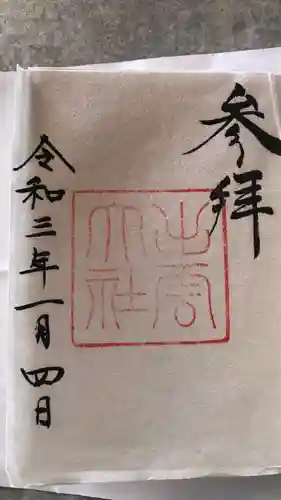 参拝
出雲
大社
令和三年一月四日